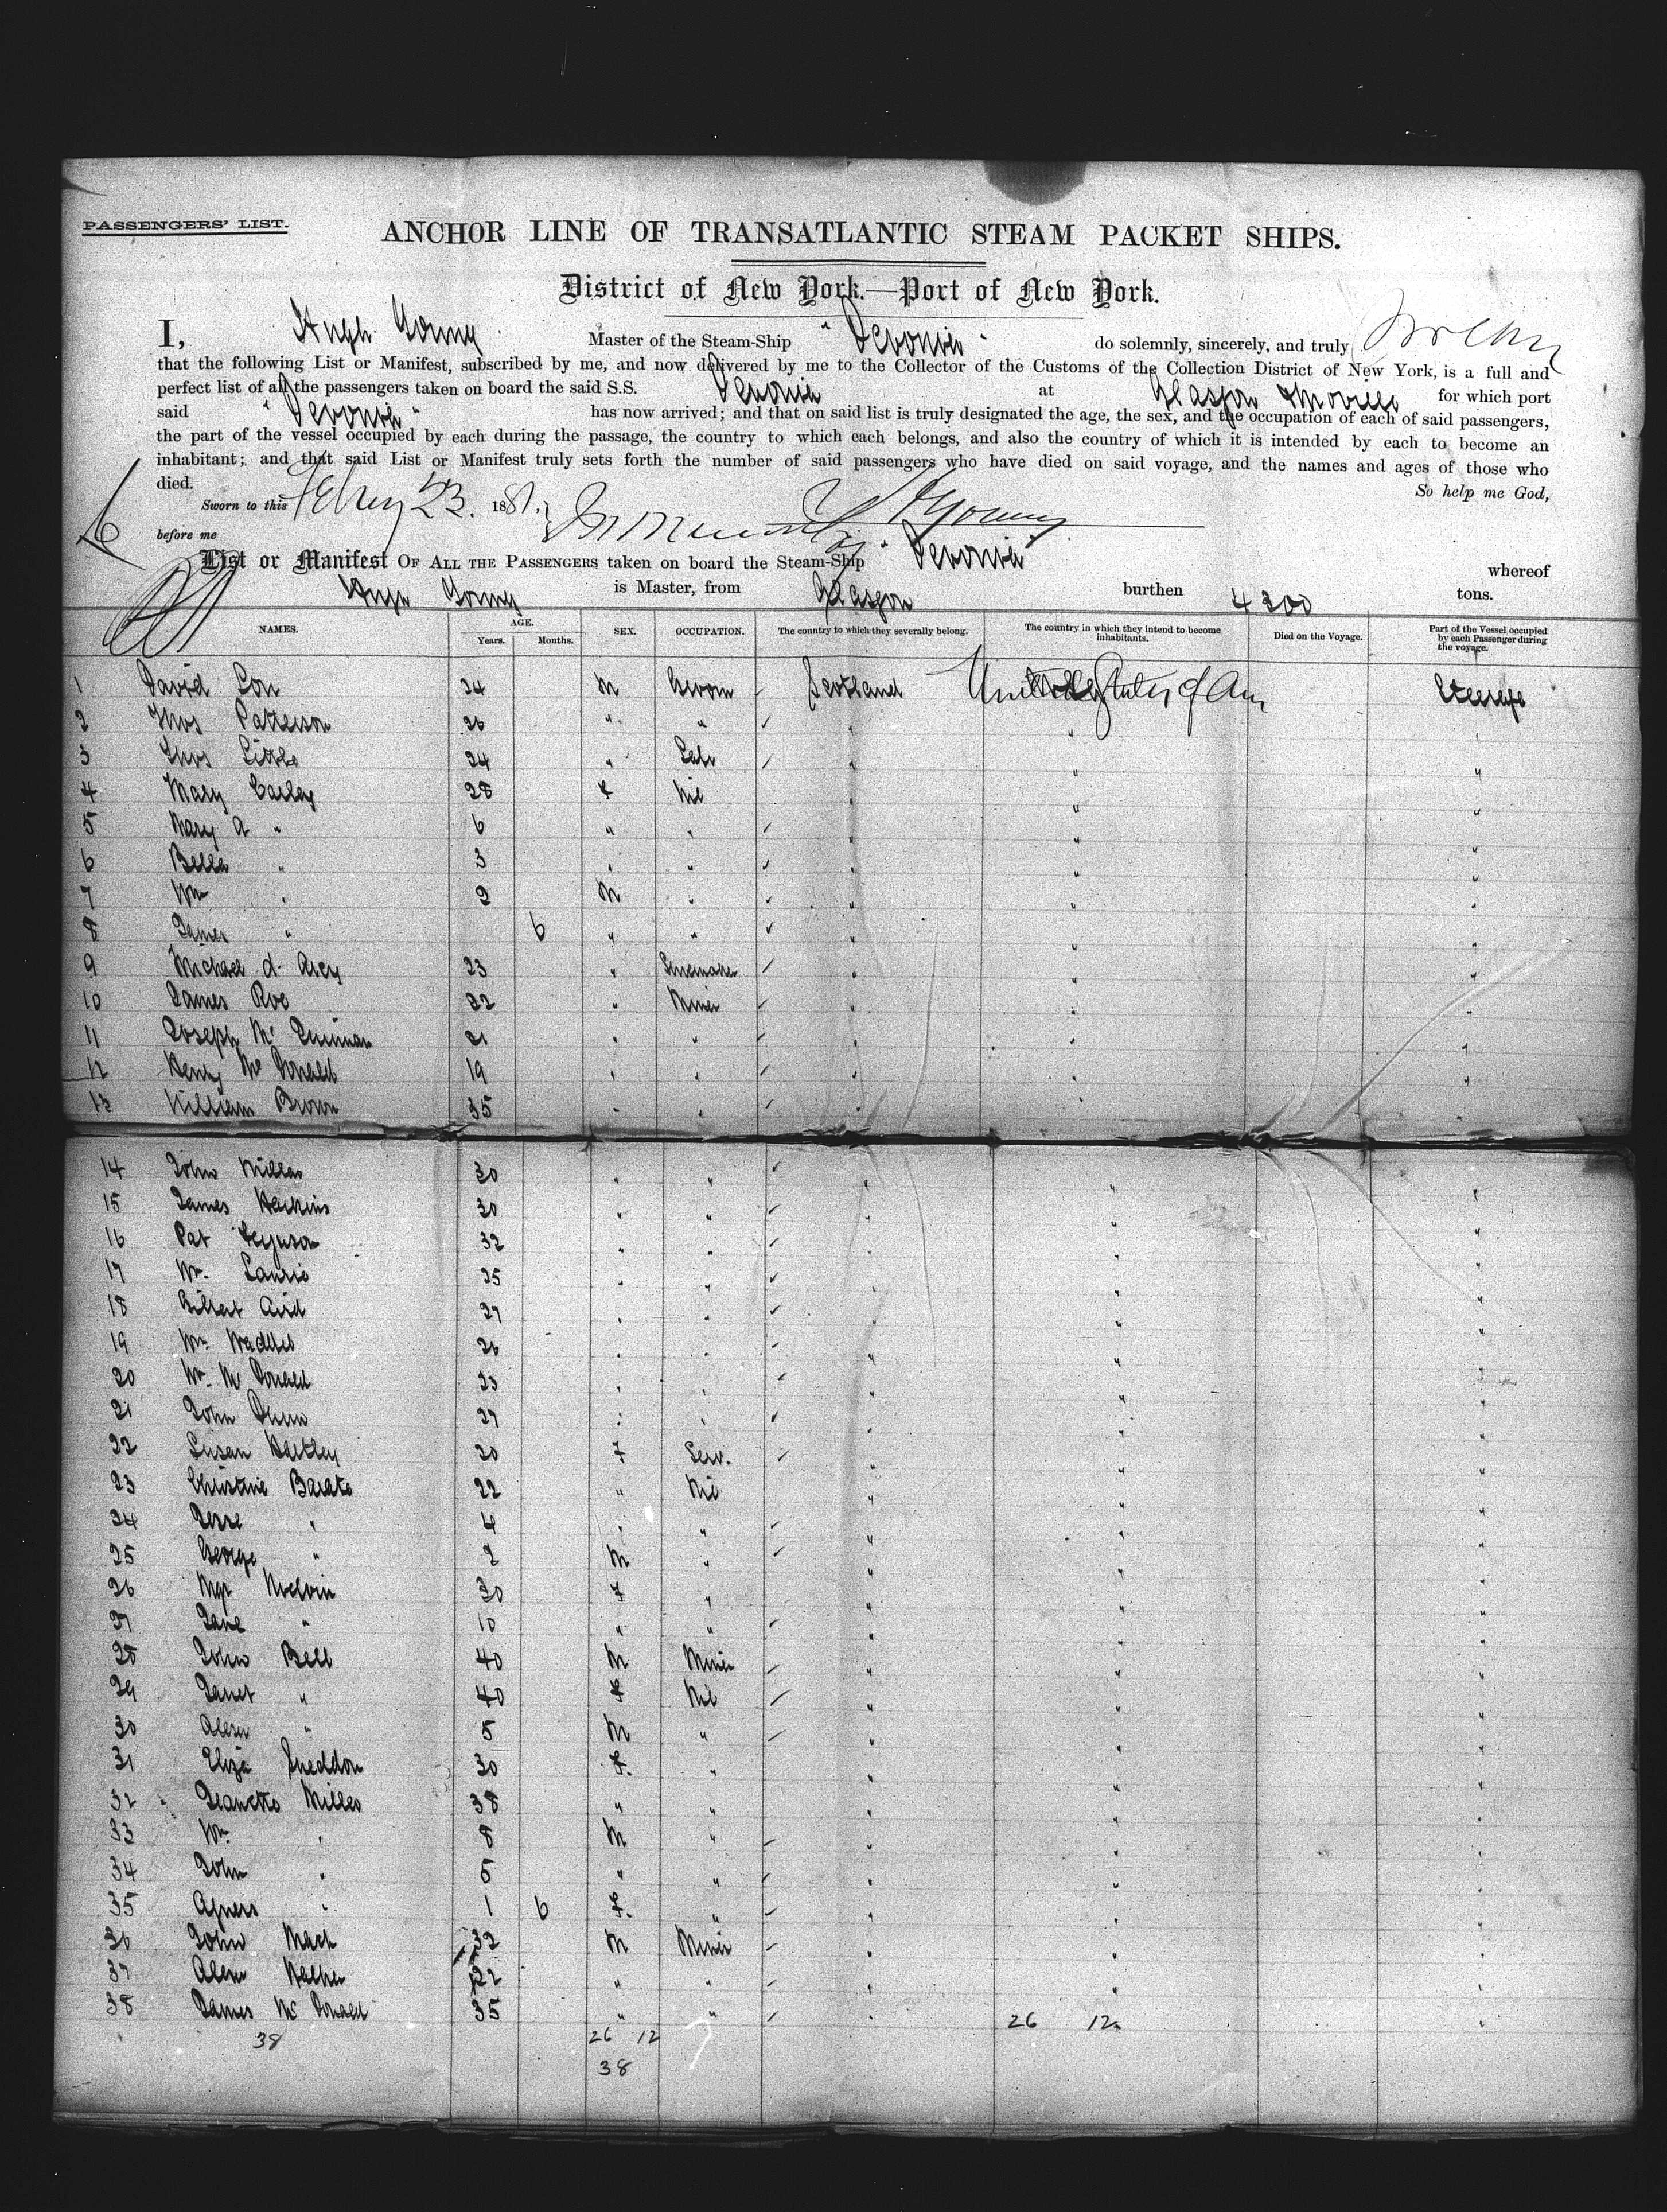 PASSENGERS' LIST.
ANCHOR LINE OF TRANSATLANTIC STEAM PACKET SHIPS.
District of New York.—Port of New York.
I, Hugh Young Master of the Steam-Ship "Devonia" do solemnly, sincerely, and truly swear
that the following List or Manifest, subscribed by me, and now delivered by me to the Collector of the Customs of the Collection District of New York, is a full and
perfect list of all the passengers taken on board the said S.S. Devonia at Glasgow & Moville for which port
said "Devonia" has now arrived; and that on said list is truly designated the age, the sex, and the occupation of each of said passengers,
the part of the vessel occupied by each during the passage, the country to which each belongs, and also the country of which it is intended by each to become an
inhabitant; and that said List or Manifest truly sets forth the number of said passengers who have died on said voyage, and the names and ages of those who
died. So help me God,
Sworn to this Feby 23. 1881. H Young
before me
List or Manifest OF ALL THE PASSENGERS taken on board the Steam-Ship "Devonia" whereof
Hugh Young is Master, from Glasgow burthen 4200 tons.
NAMES. AGE. Years. Months. SEX. OCCUPATION. The country to which they severally belong. The country in which they intend to become inhabitants. Died on the Voyage. Part of the Vessel occupied by each Passenger during the voyage.
1 David 24 M Groom Scotland United States of Am Steerage
2 Thos Patterson 26 " " " " "
3 Thos Little 24 " Labr " " "
4 Mary 28 F Nil " " "
5 Mary A " 6 " " " " "
6 Bella " 3 " " " " "
7 Wm " 2 M " " " "
8 James " 6 " " " " "
9 Michael d. Arcy 23 " Shoemaker " " "
10 James Roe 22 " Miner " " "
11 Joseph Mc 21 " " " " "
12 Henry Mc Donald 19 " " " " "
13 William Brown 35 " " " " "
14 John Miller 30 " " " " "
15 James Harkins 30 " " " " "
16 Pat Ferguson 32 " " " " "
17 Wm. Laurie 25 " " " " "
18 Gilbert Aird 27 " " " " "
19 Wm Waddell 26 " " " " "
20 Wm. Mc Donald 23 " " " " "
21 John 27 " " " " "
22 Susan Hartley 20 F Serv. " " "
23 Christina 22 " Nil " " "
24 Jesse " 4 " " " " "
25 George " 2 M " " " "
26 Mgt Melvin 30 F " " " "
27 Jane " 10 " " " " "
28 John Bell 40 M Miner " " "
29 Janet " 40 F Nil " " "
30 Alexr " 5 M " " " "
31 Eliza Sneddon 30 F. " " " "
32 Jeanette Miller 38 " " " " "
33 Wm " 8 M " " " "
34 John " 5 " " " " "
35 Agness " 1 6 F. " " " "
36 John Mack 32 M Miner " " "
37 Alexr Walker 22 " " " " "
38 James Mc Donald 35 " " " 26 12 "
38 26 12
38